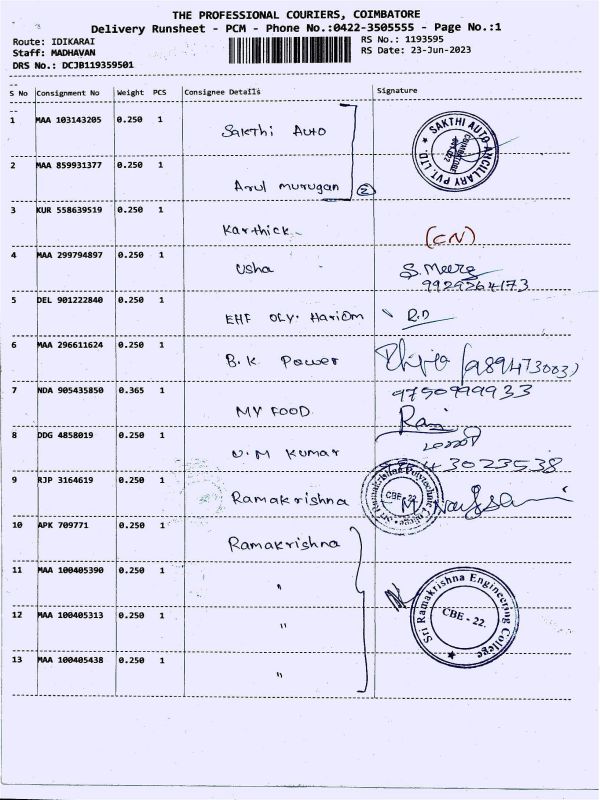 THE PROFESSIONAL COURIERS, COIMBATORE
Delivery Runsheet - PCM - Phone No.:0422-3505555 - Page No.:1
Route: IDIKARAI
RS No.: 1193595
Staff: MADHAVAN
RS Date: 23-Jun-2023
DRS No.: DCJB119359501
S No Consignment No Weight PCS Consignee Details Signature
1 MAA 103143205 0.250 1 Sakthi Auto
SAKTHI AUTO ANCILLARY PVT. LTD.
2 MAA 859931377 0.250 1 Arul murugan 2
3 KUR 558639519 0.250 1 Karthick (CN)
4 MAA 299794897 0.250 1 Usha S. Meera
9929564173
5 DEL 901222840 0.250 1 EHF OLY. HariOm R.D
6 MAA 296611624 0.250 1 B.K. Power (9894473003)
9750999933
7 NDA 905435850 0.365 1 MY FOOD Ravi
8 DDG 4858019 0.250 1 U.M Kumar
3023538
9 RJP 3164619 0.250 1 Ramakrishna
Sri Ramakrishna Polytechnic College
CBE - 22.
10 APK 709771 0.250 1 Ramakrishna
11 MAA 100405390 0.250 1 "
Sri Ramakrishna Engineering College
CBE - 22.
12 MAA 100405313 0.250 1 "
13 MAA 100405438 0.250 1 "